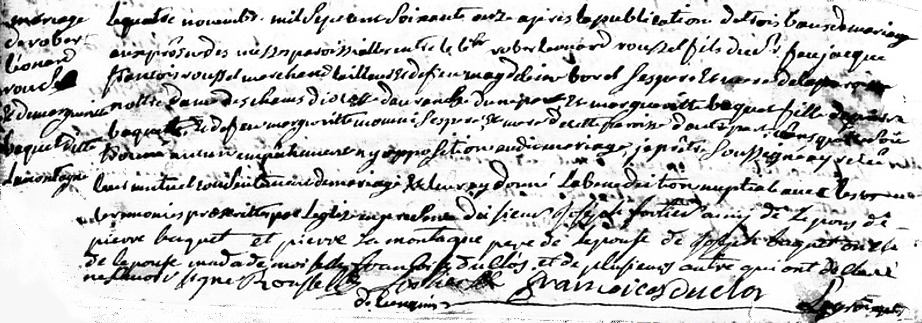 mariage
de robert
léonard
rousel
& de marguerite
bequet dite
lamontagne
le quatre novembre mil sept cent soixante onze après la publication de trois bans de mariage
aux prosnes des messes paroissialles entre le sr robert léonard roussel fils du sr feu jacque
francois roussel marchand tailleur & defeu magdeleine borel ses pere & mere de la paroisse
nostre dame des champs diocese d'avranche d'une part & marguerite bequet fille de pierre
bequet & defeue margueritte ses pere & mere de cette paroisse d'autre part
aucun empêchement ny opposition audit mariage je pretre soussigné ay receu
leur mutuel consentement de mariage & leur ay donné la benediction nuptiale avec les
ceremonies prescrittes par l'eglize en presence du sieur joseph fortier amy de l'epous de
pierre bequet et pierre la montagne pere de l'epouse de joseph bequet oncle
de l'epouse mademoiselle françoise duclos et de plusieurs autre qui ont declaré
ne savoir signe Roussel fortier francoise duclos